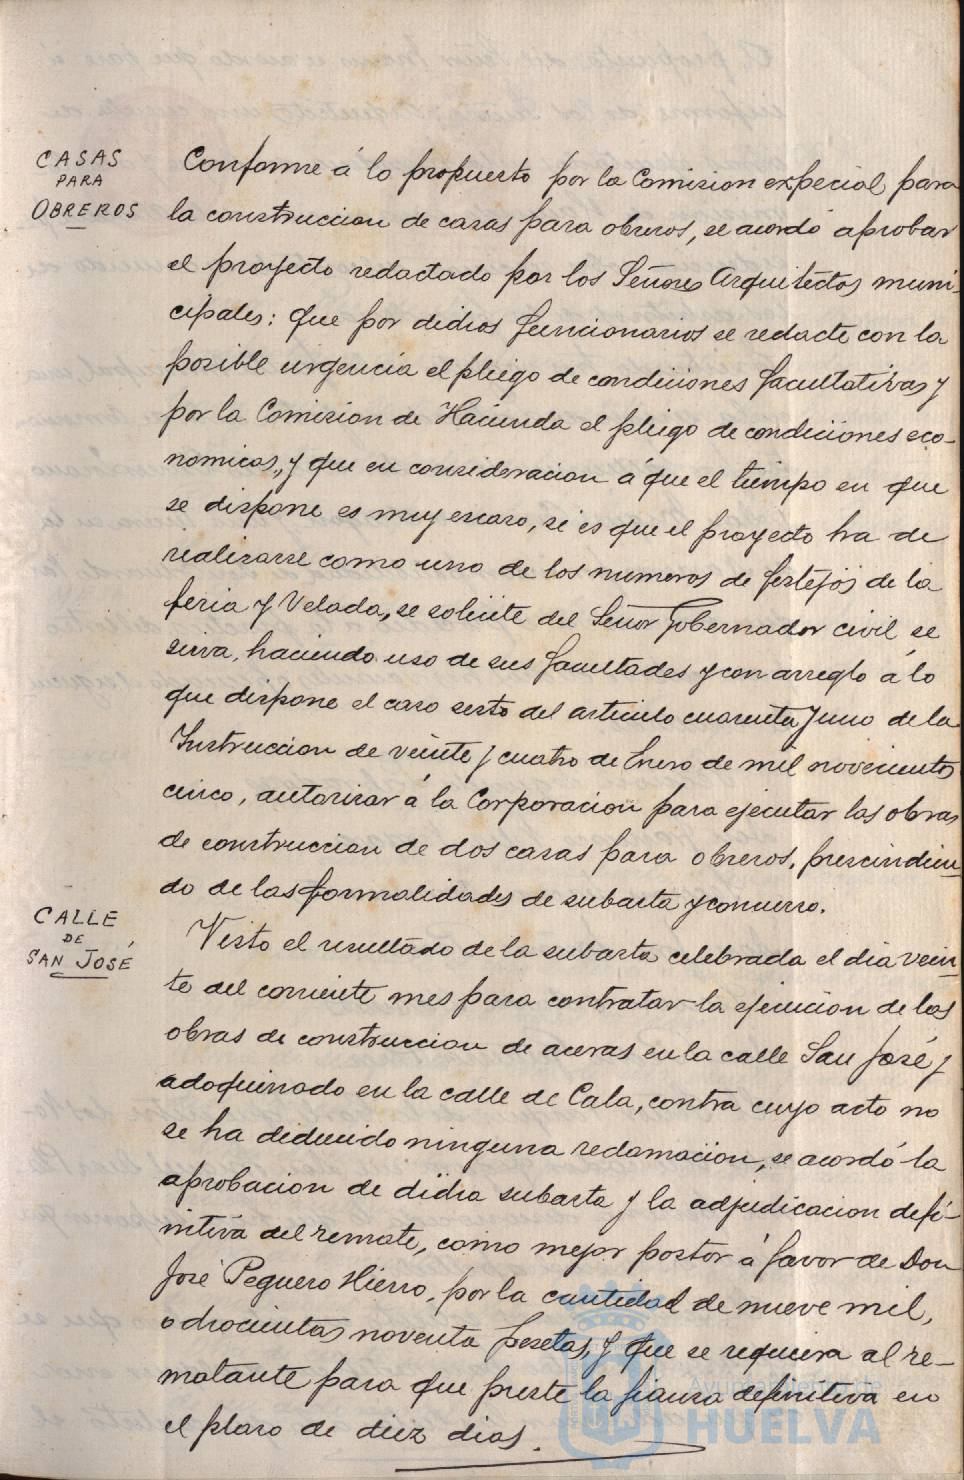 CASAS
PARA
OBREROS
Conforme á lo propuesto por la Comision expecial para
la construccion de casas para obreros, se acordó aprobar
el proyecto redactado por los Señores Arquitectos muni-
cipales: que por dichos funcionarios se redacte con la
posible urgencia el pliego de condiciones facultativas y
por la Comision de Hacienda el pliego de condiciones eco-
nomicas, y que en consideracion á que el tiempo en que
se dispone es muy escaso, si es que el proyecto ha de
realizarse como uno de los numeros de festejos de la
feria y Velada, se solicite del Señor Gobernador civil se
sirva, haciendo uso de sus facultades y con arreglo á lo
que dispone el caso sesto del articulo cuarenta y uno de la
Instruccion de veinte y cuatro de Enero de mil novecientos
cinco, autorizar á la Corporacion para ejecutar las obras
de construccion de dos casas para obreros, prescindien-
do de las formalidades de subasta y concurso.
CALLE
DE
SAN JOSÉ
Visto el resultado de la subasta celebrada el dia vein-
te del corriente mes para contratar la ejecucion de las
obras de construccion de aceras en la calle San José y
adoquinado en la calle de Cala, contra cuyo acto no
se ha deducido ninguna reclamacion, se acordó la
aprobacion de dicha subasta y la adjudicacion defi-
nitiva del remate, como mejor postor á favor de Don
José Peguero Hierro, por la cantidad de nueve mil,
ochocientas noventa pesetas, y que se requiera al re-
matante para que preste la fianza definitiva en
el plazo de diez dias.
Ayuntamiento de
HUELVA